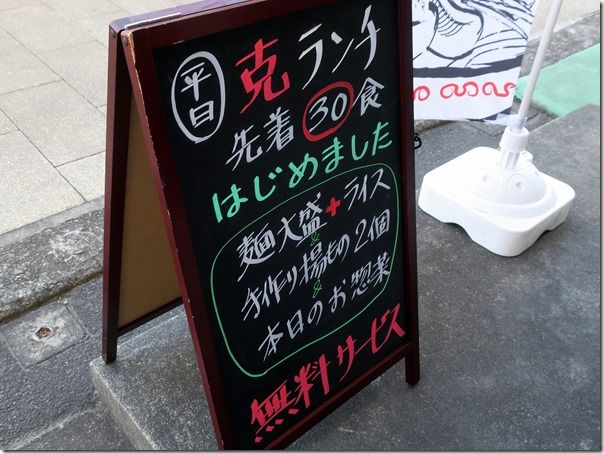 平日 克ランチ
先着30食
はじめました
麺大盛+ライス
&
手作り揚もの2個
&
本日のお惣菜
無料サービス